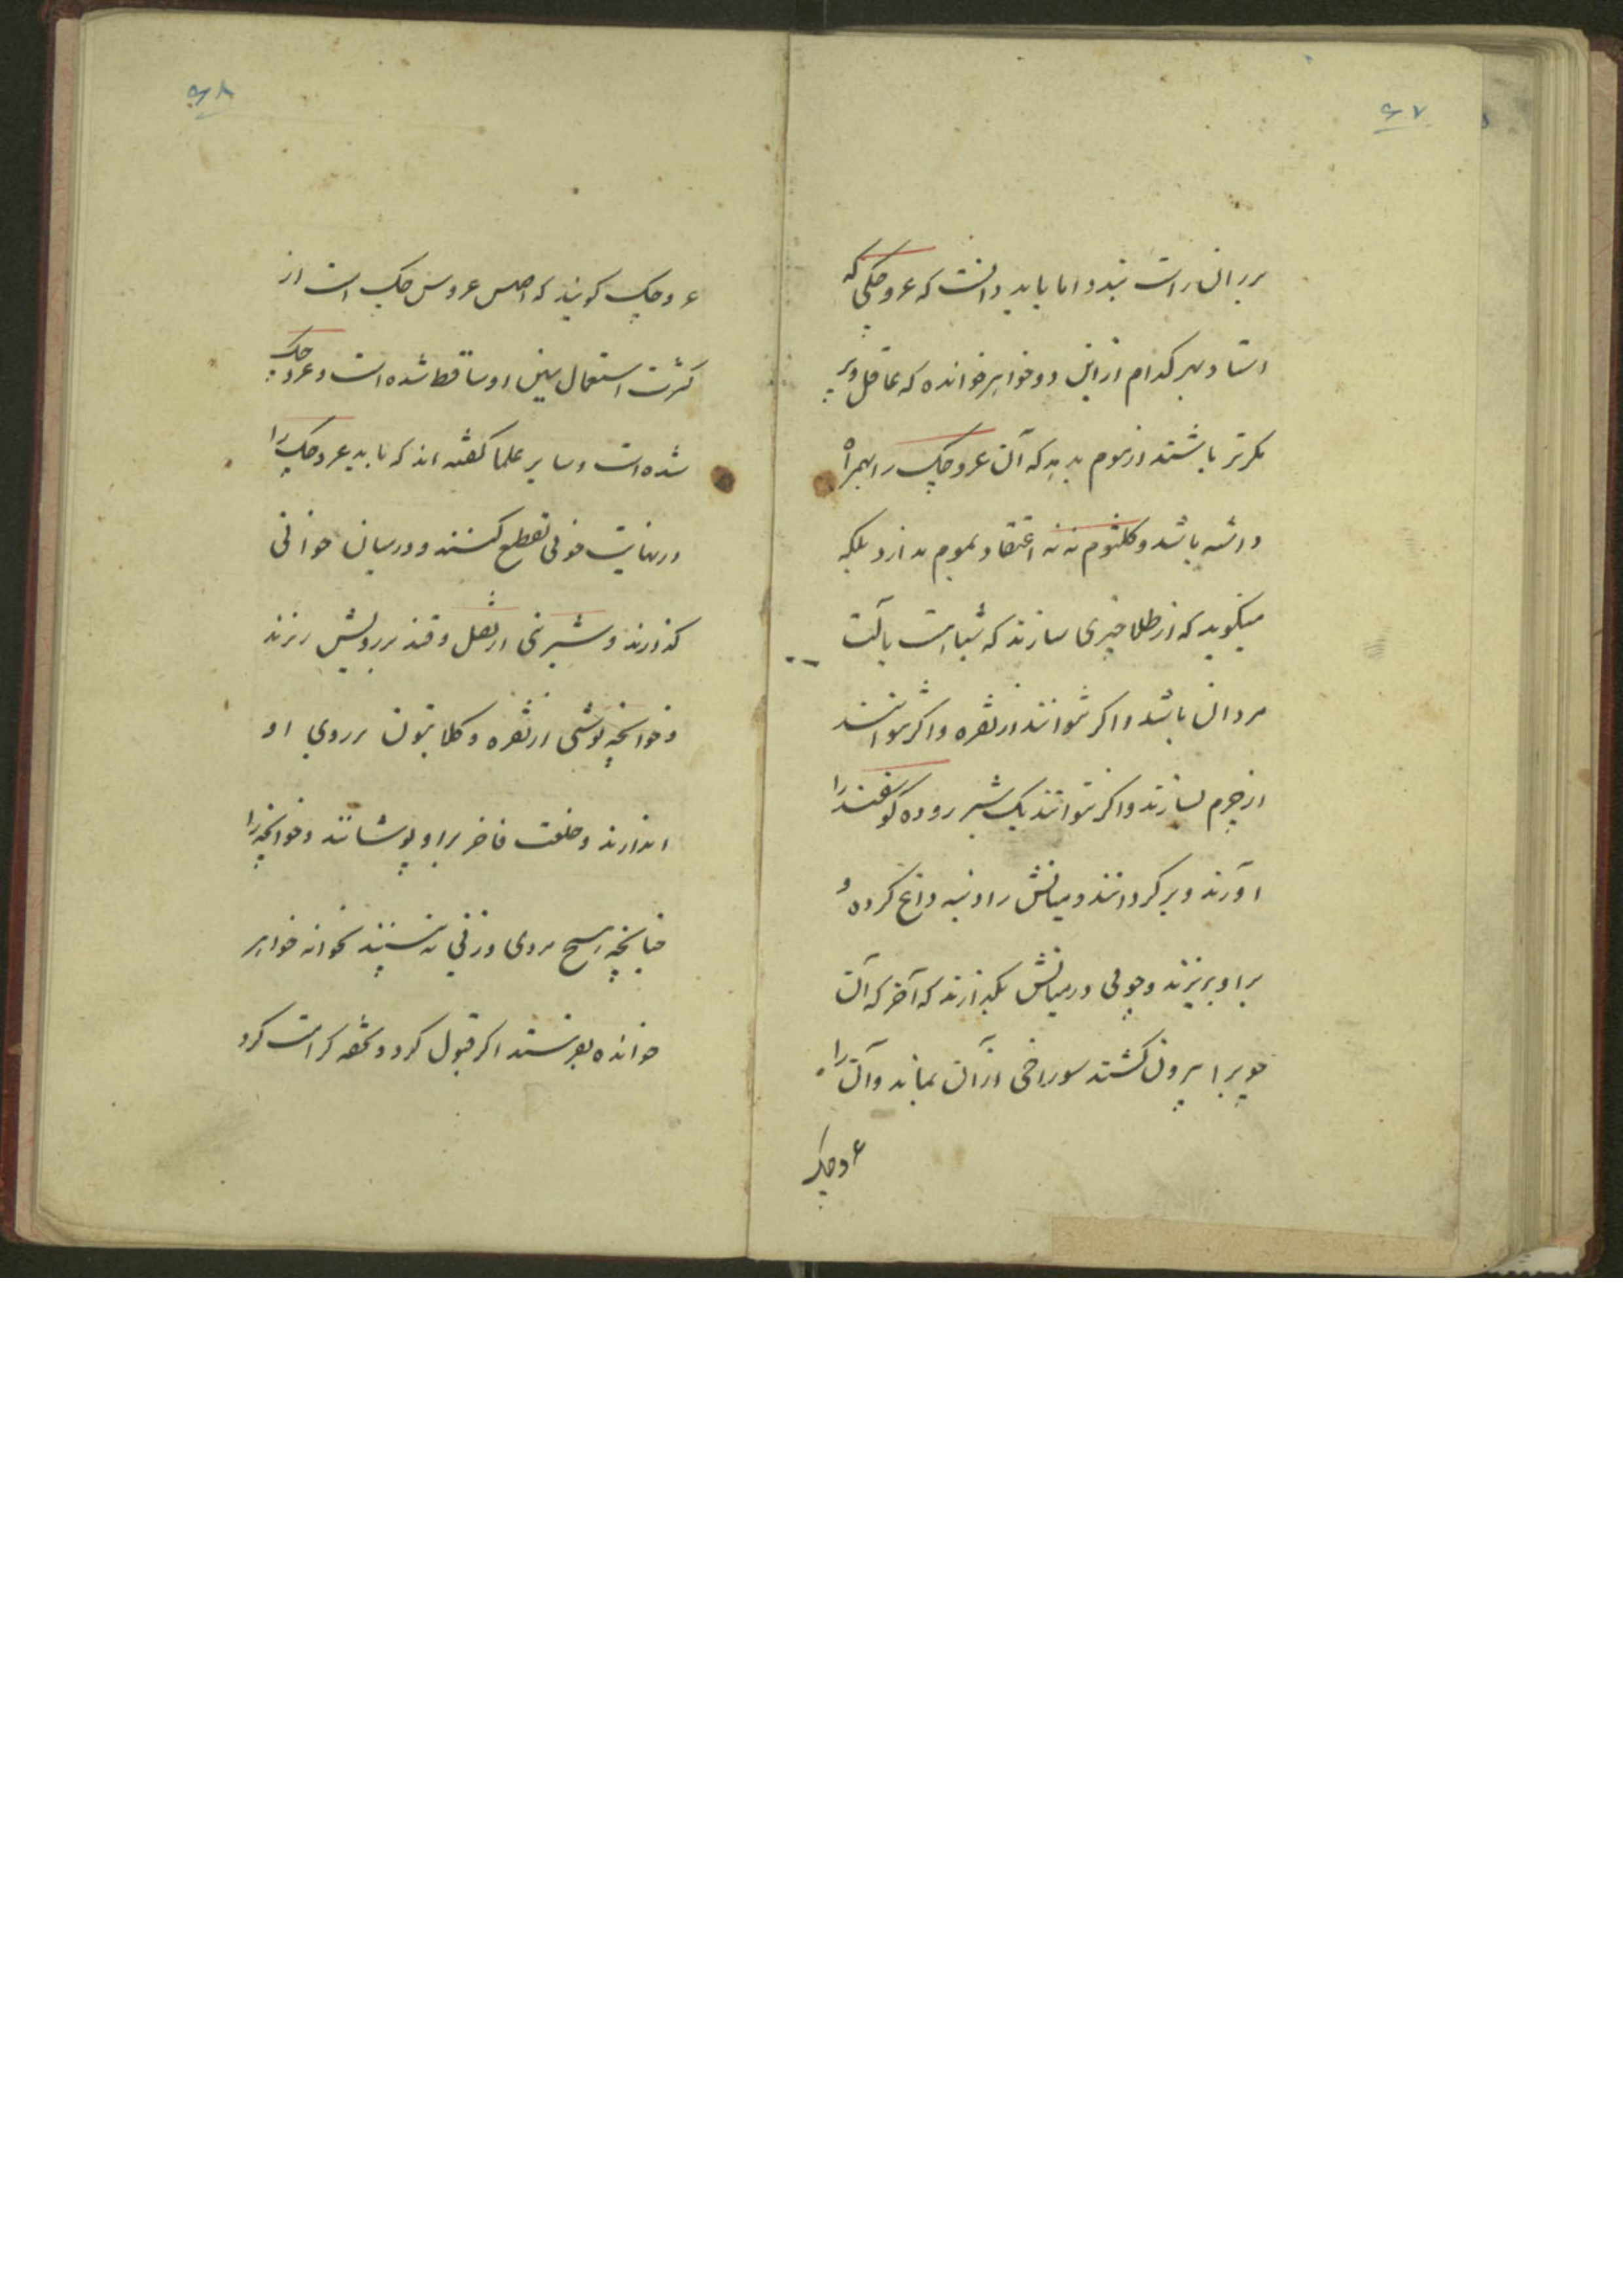 ۶۷
بر ران راست بندد اما باید دانست که عروچکی که
استاد بهر کدام از این دو خواهر خوانده که عاقل و پر
مکرتر باشند از موم بدهد که آن عروچک را بهمراه
داشته باشد و کلثوم ننه اعتقاد بموم ندارد بلکه
میگوید که از طلا چیزی بسازند که شباهت بآلت
مردان باشد و اگر نتوانند از نقره و اگر نتوانند
از چرم بسازند و اگر نتوانند یک شبر روده گوسفند را
آورند و برگردانند و میانش را دنبه داغ کرده و
بر او بریزند و چوبی در میانش بگذارند که آخر که آن
چوبرا بیرون کشند سوراخی از آن بماند و آن را
عروچک
۶۸
عروچک گویند که اصلش عروس چک است از
کثرت استعمال سین او ساقط شده است و عروچک
شده است و سایر علما گفته اند که باید عروچک را
در نهایت خوبی تقطیع کنند و در میان خوانی
گذارند و شیرینی از نقل و قند بر رویش ریزند
و خوانچه پوشی از نقره و کلابتون بر روی او
اندازند و خلعت فاخر بر او پوشانند و خوانچه را
چنانچه هیچ مردی و زنی نه بیند بخوانه خواهر
خوانده بفرستند اگر قبول کرد و تحفه کرامت کرد